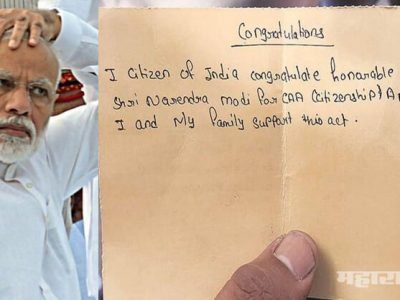 Congratulations
I citizen of India congratulate honarable
Shri Narendra Modi for CAA Citizenship
I and My family support this act.
महारा